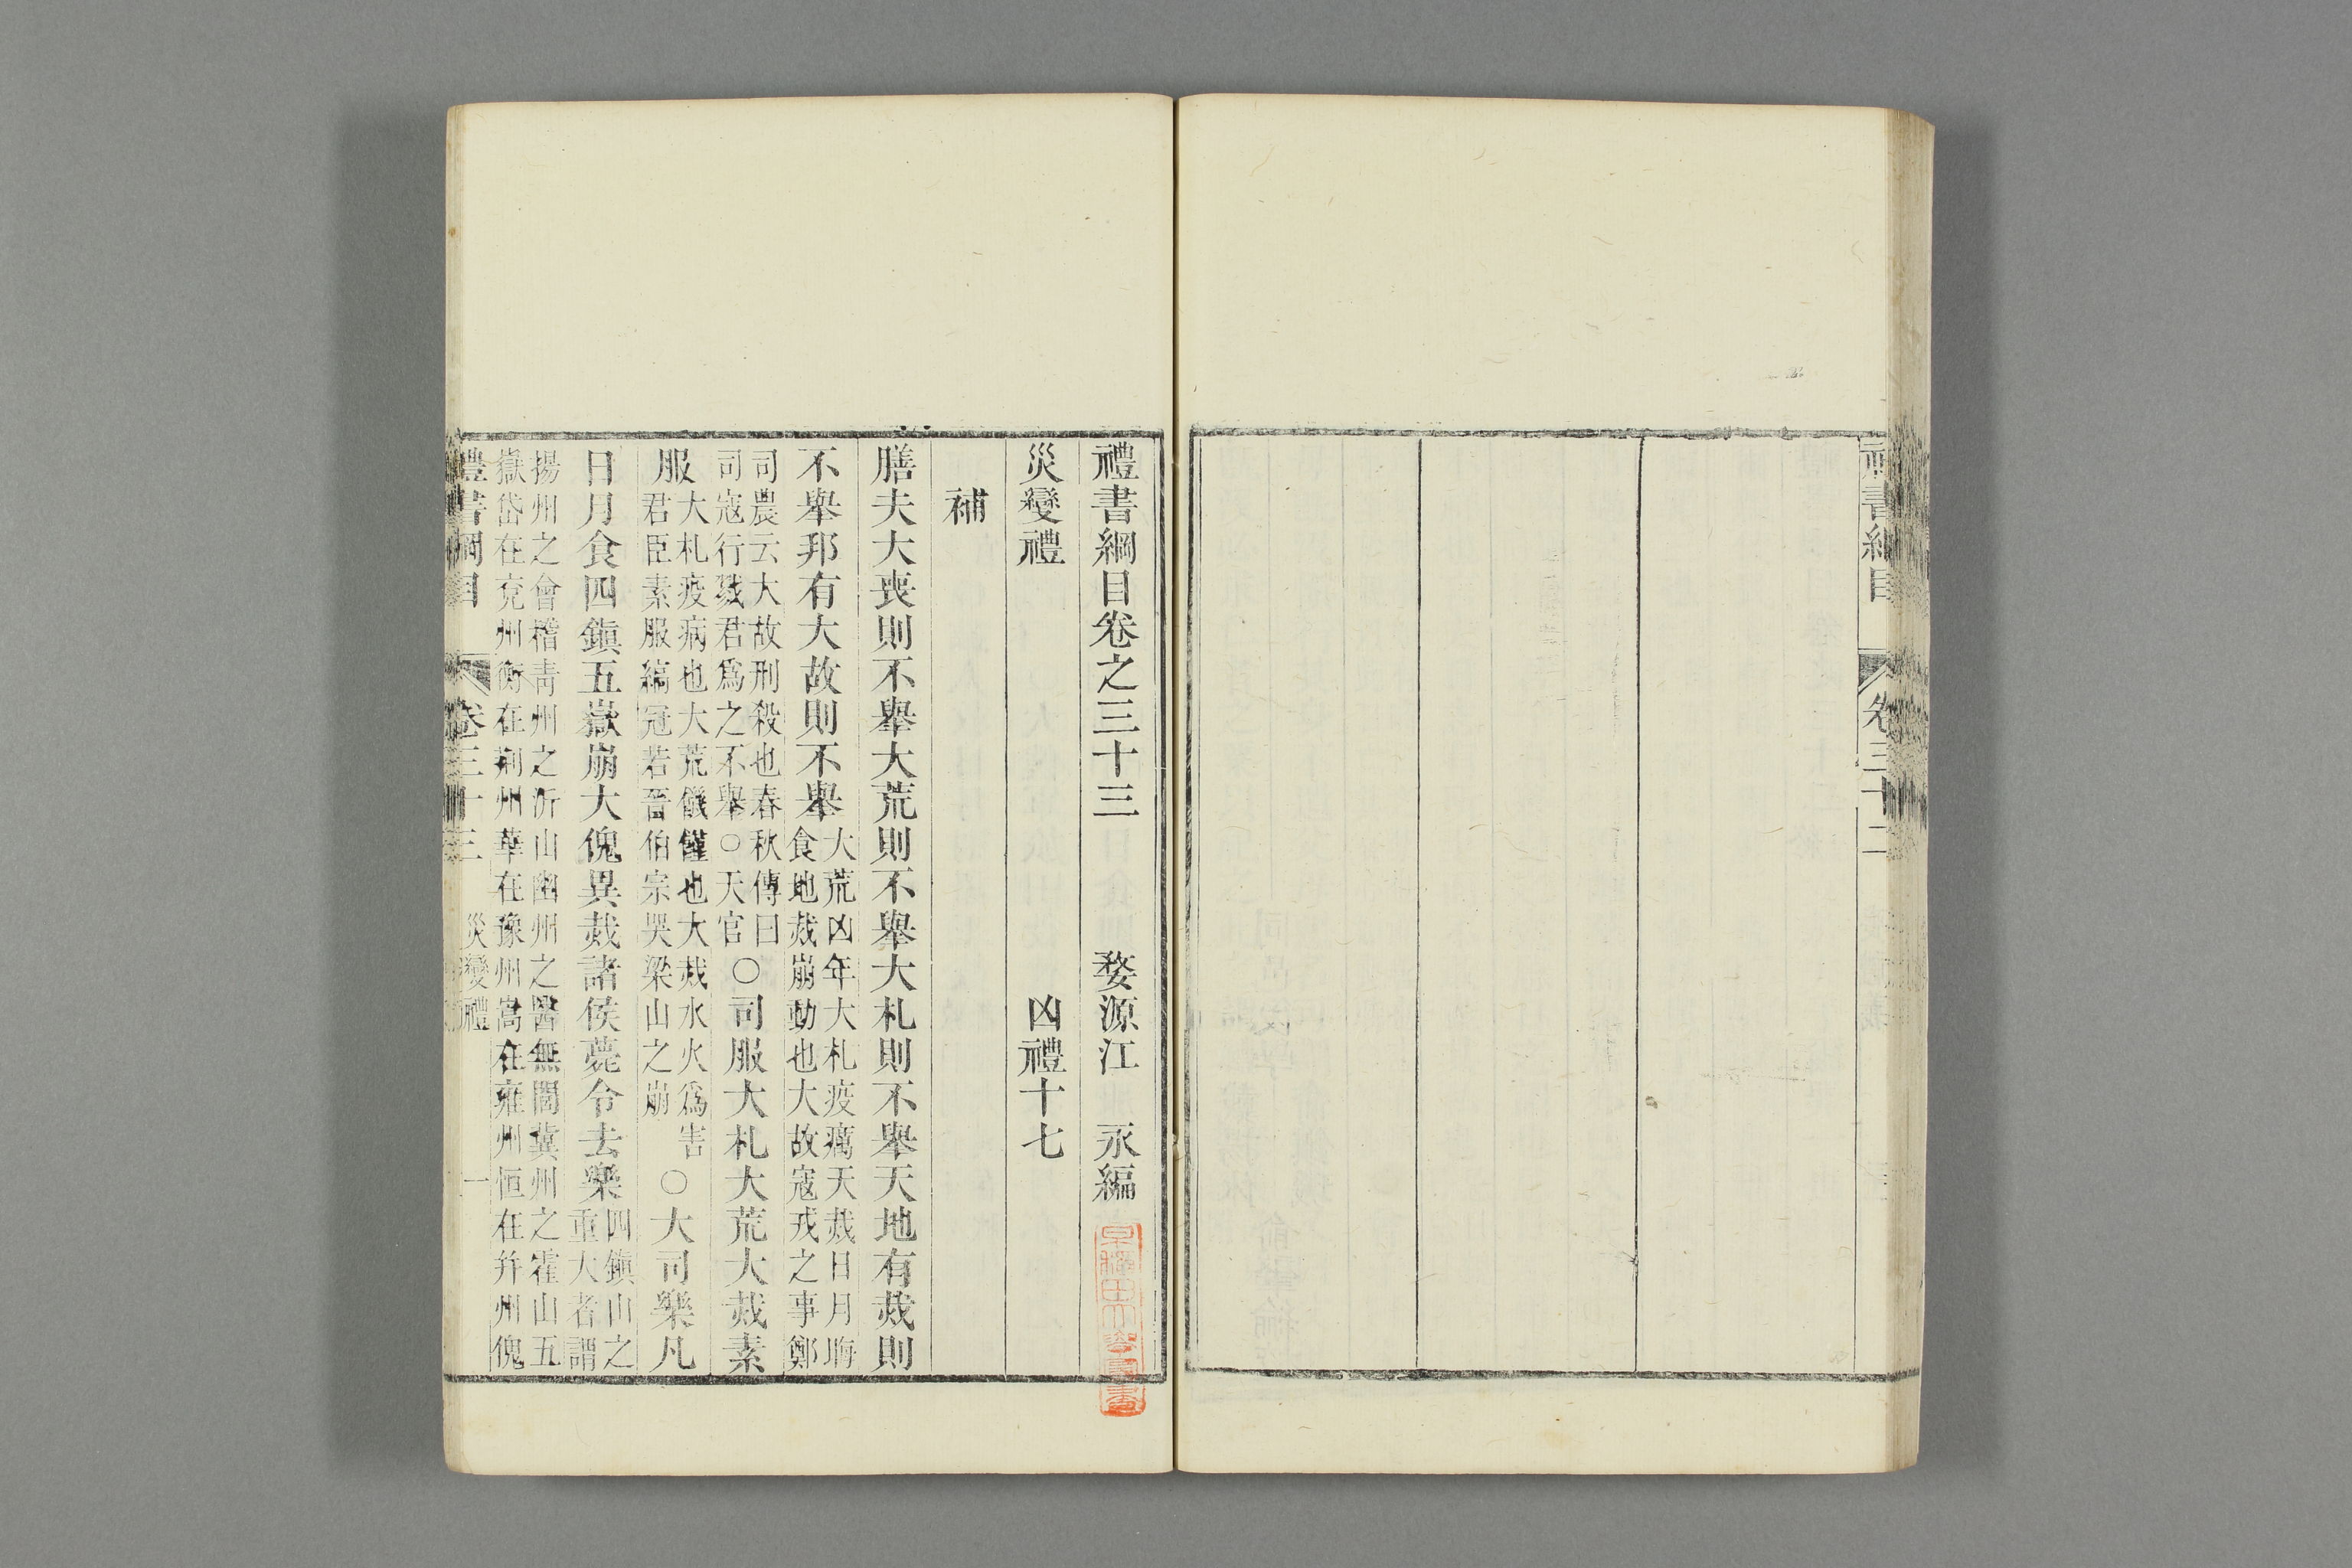 禮書綱目　卷三十二
禮書綱目卷之三十三　婺源江　永編
早稻田大學圖書
災變禮　凶禮十七
補
膳夫大喪則不舉大荒則不舉大札則不舉天地有烖則
不舉邦有大故則不舉大荒凶年大札疫癘天烖日月晦
食地烖崩動也大故寇戎之事鄭
司農云大故刑殺也春秋傳曰
司寇行戮君爲之不舉○天官○司服大札大荒大烖素
服大札疫病也大荒饑饉也大烖水火爲害
君臣素服縞冠若晉伯宗哭梁山之崩○大司樂凡
日月食四鎭五嶽崩大傀異烖諸侯薨令去樂四鎭山之
重大者謂
揚州之會稽青州之沂山幽州之醫無閭冀州之霍山五
嶽岱在兗州衡在荆州華在豫州嵩在雍州恒在幷州傀
禮書綱目　卷三十三　災變禮　一